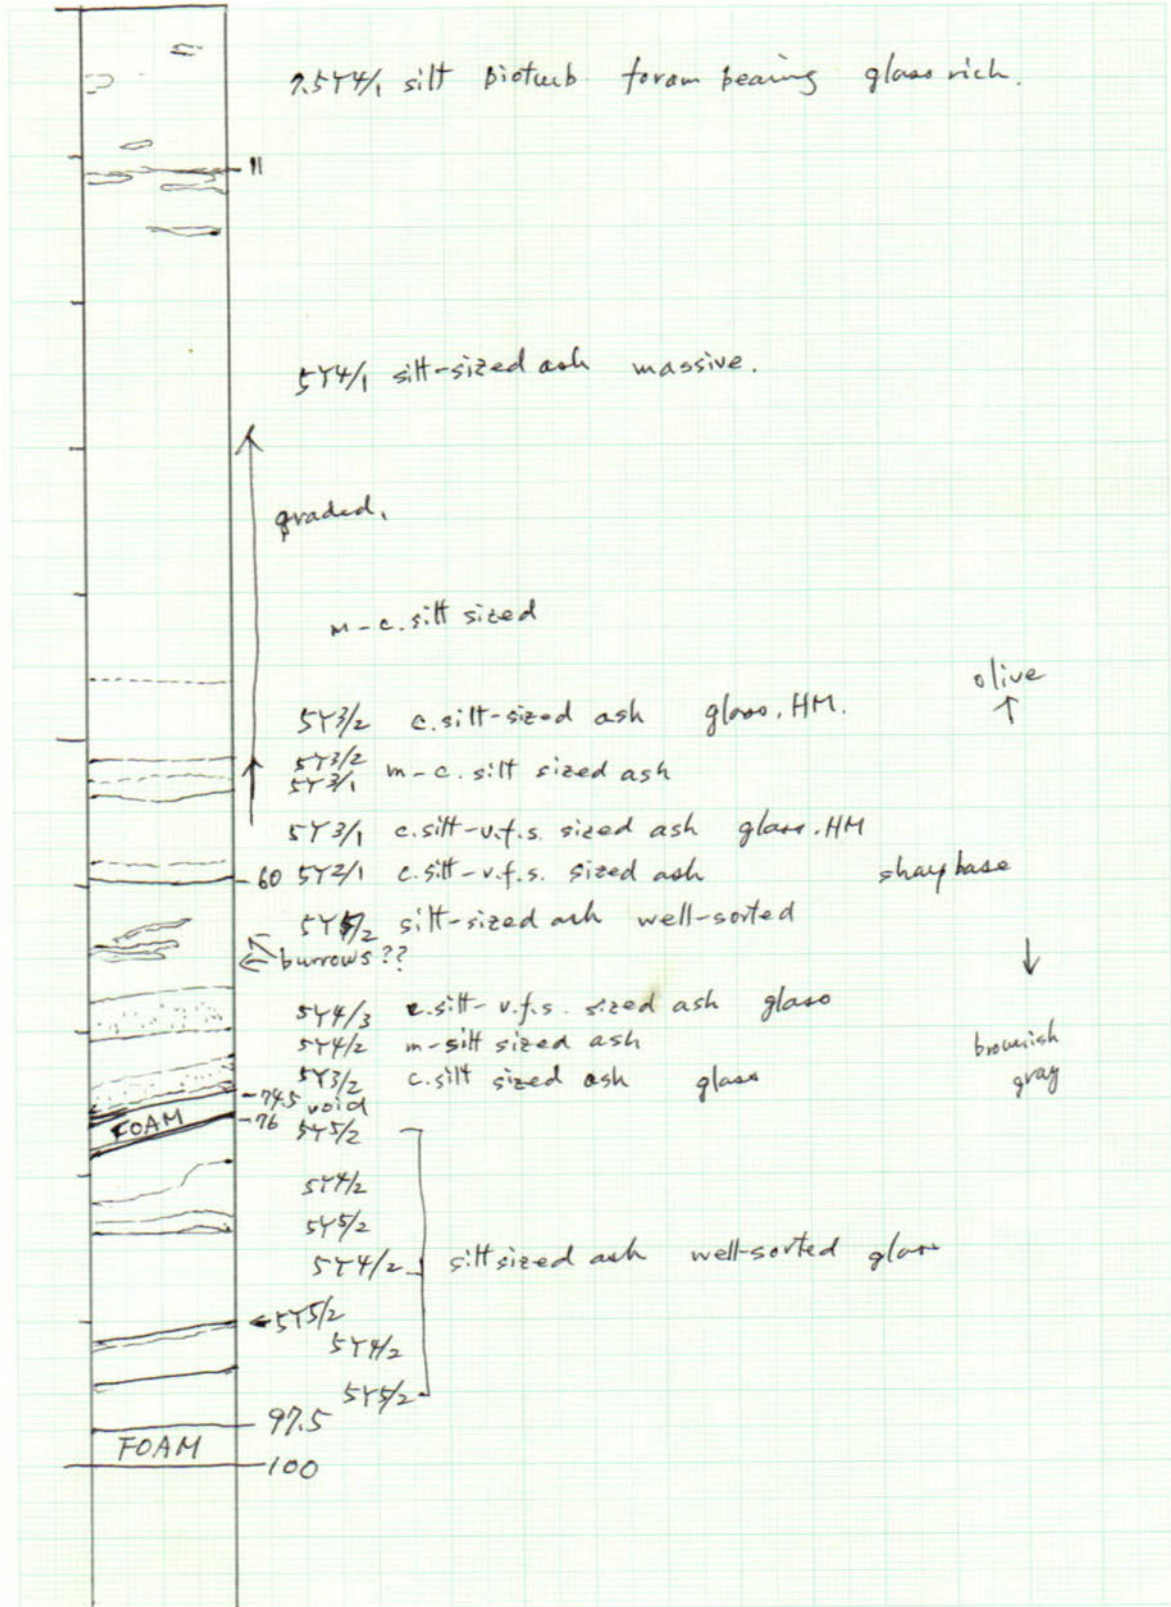 7.5Y4/1 silt bioturb. foram bearing glass rich.
11
5Y4/1 silt-sized ash massive.
graded.
m-c. silt sized
olive
↑
5Y3/2 c. silt-sized ash glass. HM.
5Y3/2
5Y3/1 m-c. silt sized ash
5Y3/1 c. silt-v.f.s. sized ash glass. HM
60 5Y2/1 c. silt-v.f.s. sized ash sharp base
5Y5/2 silt-sized ash well-sorted
burrows??
↓
5Y4/3 c. silt-v.f.s. sized ash glass
5Y4/2 m-silt sized ash
brownish
gray
5Y3/2 c. silt sized ash glass
74.5 void
FOAM
76 5Y5/2
5Y4/2
5Y5/2
5Y4/2 silt sized ash well-sorted glass
5Y5/2
5Y4/2
5Y5/2
97.5
FOAM
100